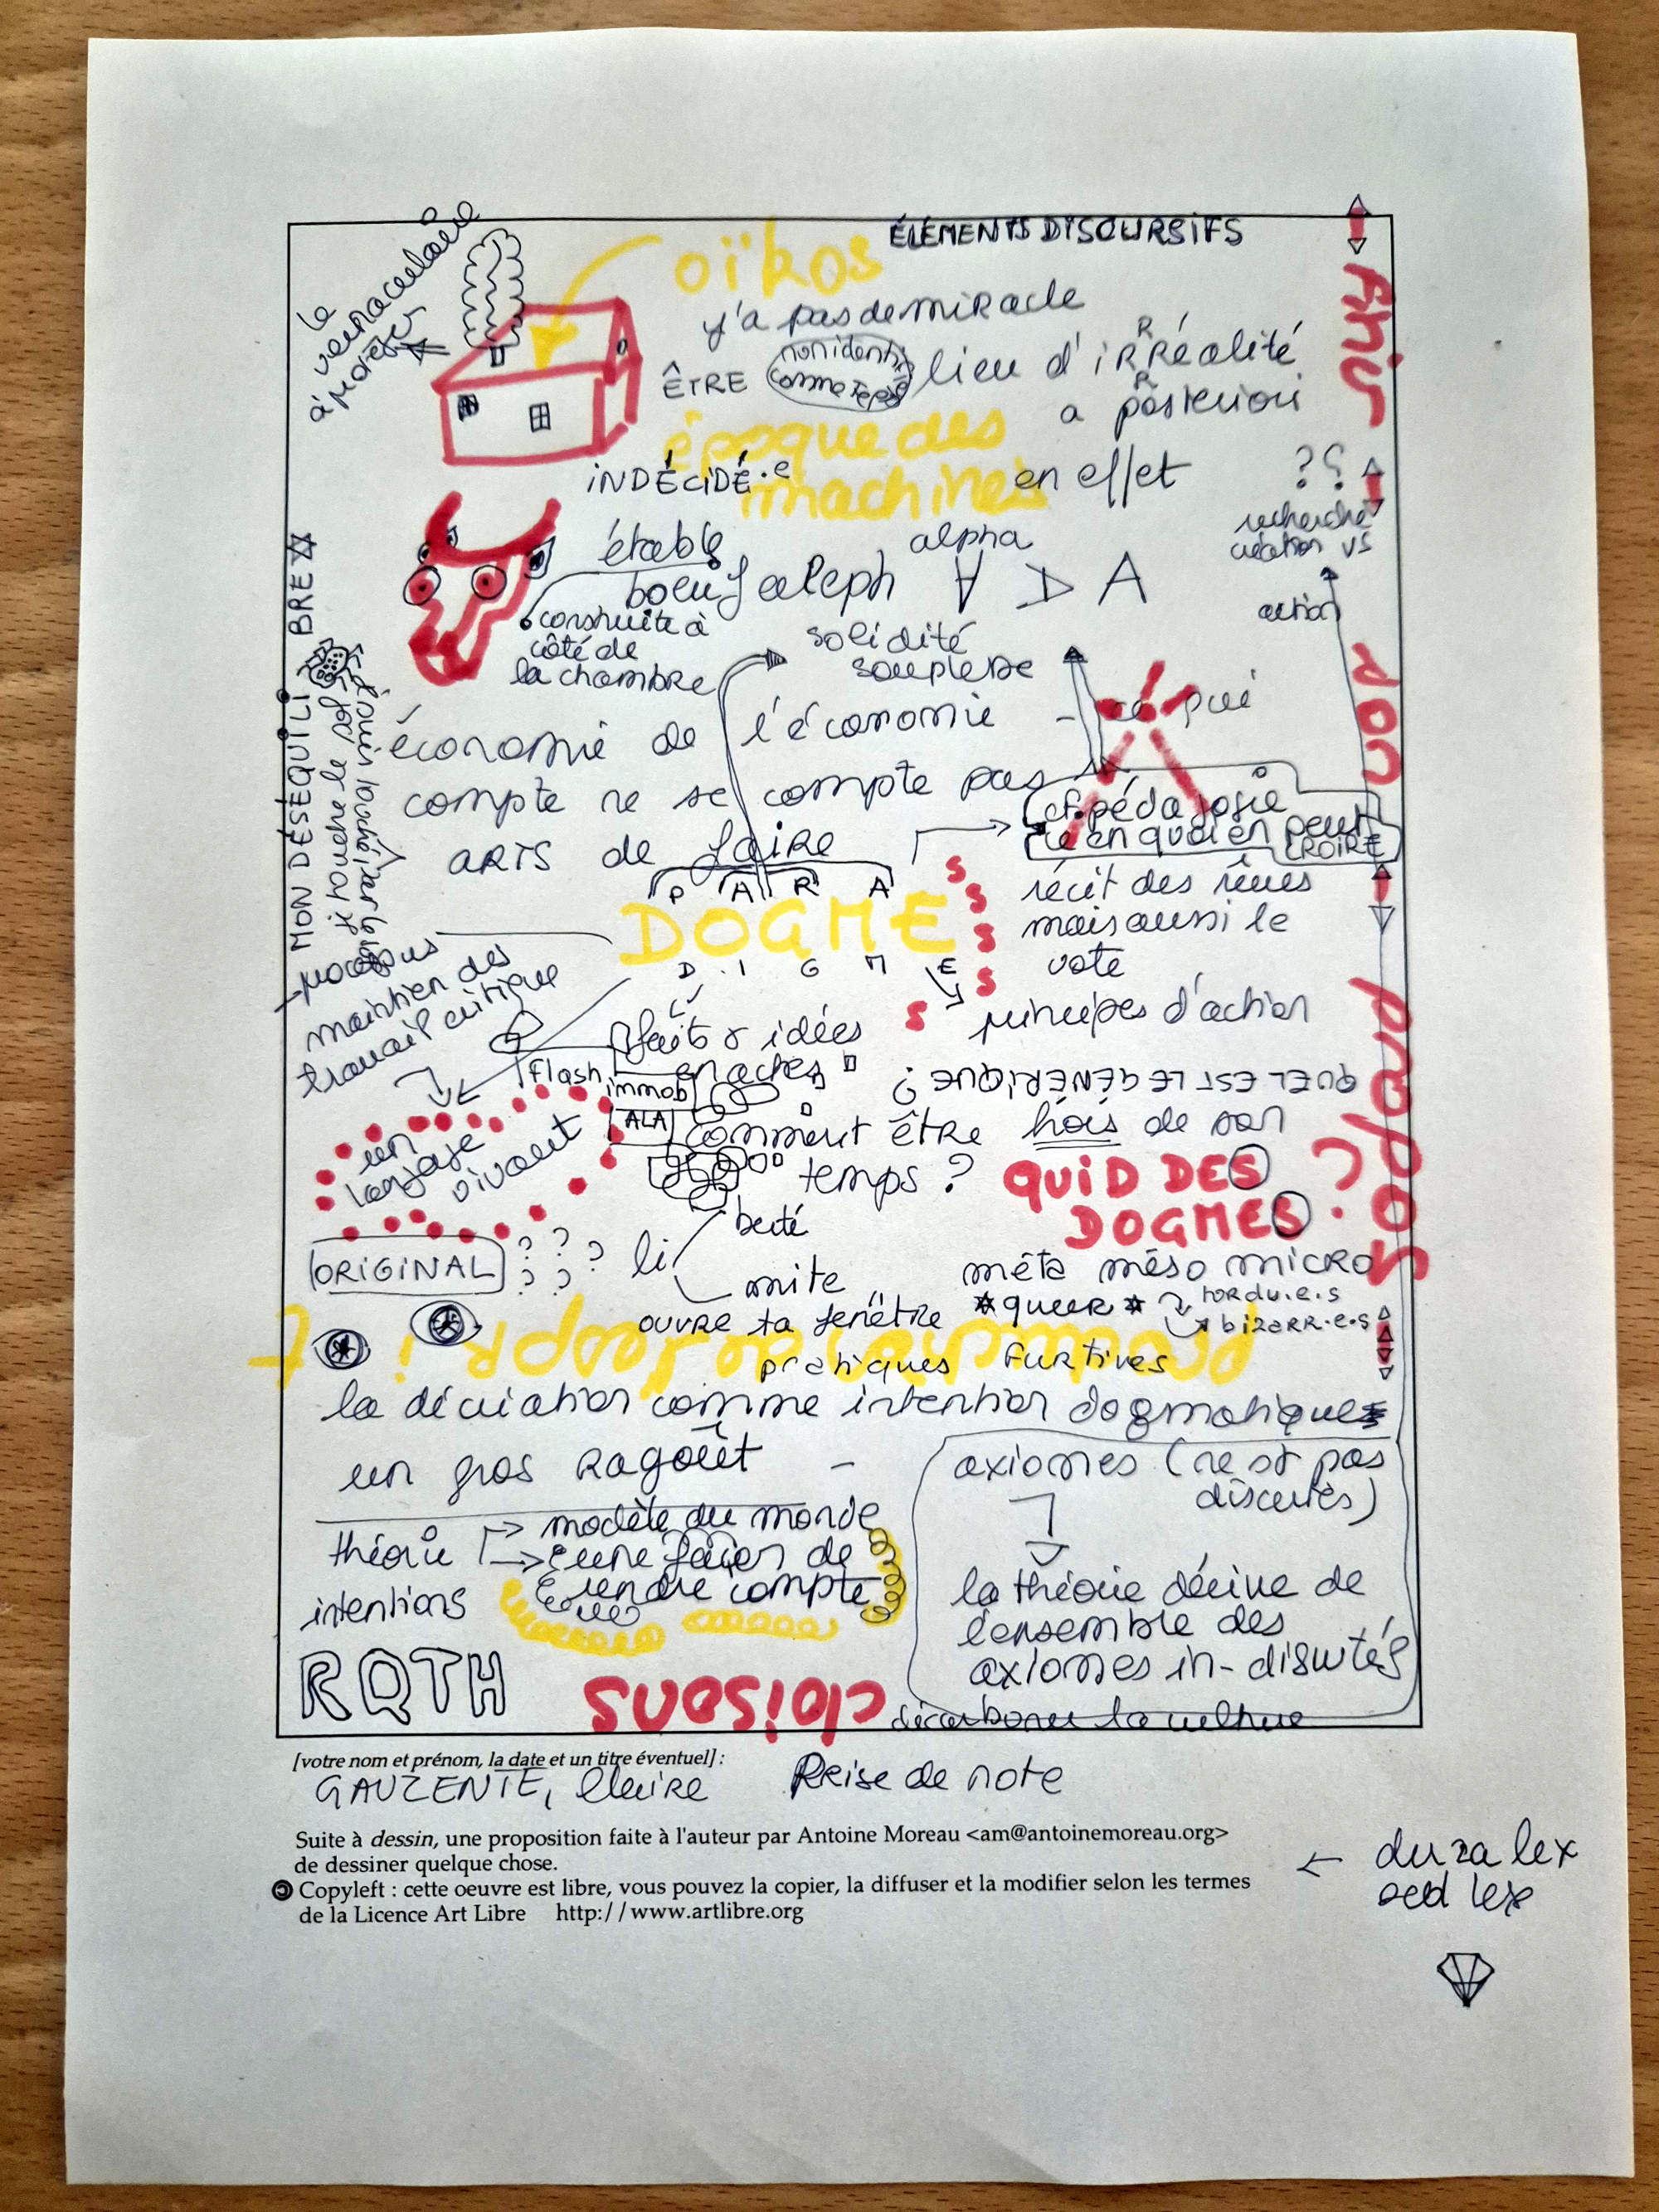 ÉLÉMENTS DISCURSIFS
le vernaculaire
oïkos
y'a pas de miracle
ÊTRE
non identi
comme
lieu d'iRRéalité
a posteriori
époque des
machines
iNDÉCiDÉ.e
en effet
??
recherche
création vs
action
étable
alpha
boeuf aleph
A
construite à
côté de
la chambre
solidité
souplesse
MON DÉSÉQUILIBRE
je touche le sol
économie de l'économie - ce qui
compte ne se compte pas
ARTS de faire
cf. pédagogie
ce en quoi on peut
CROIRE
P A R A
DOGME
D I G M E
récit des rêves
mais aussi le
vote
principes d'action
processus
maintien des
travail critique
faits & idées
en actes
flash
immob
ALA
QUEL EST LE GÉNÉRIQUE ?
un
langage
vivant
comment être hors de son
temps ?
QUID DES
DOGMES ?
ORIGINAL
? ? ? ? ?
li
berté
mite
méta méso micro
ouvre ta fenêtre
*queer*
tordu.e.s
bizarr.e.s
pratiques furtives
la déviation comme intention dogmatique
un gros Ragoût -
axiomes (ne st pas
discutés)
théorie
modèle du monde
une façon de
rendre compte
intentions
la théorie dérive de
l'ensemble des
axiomes in-discutés
RQTH
cloisons
décarboner la culture
[votre nom et prénom, la date et un titre éventuel] :
GAUZENTE, Claire
Prise de note
Suite à dessin, une proposition faite à l'auteur par Antoine Moreau <am@antoinemoreau.org>
de dessiner quelque chose.
Copyleft : cette oeuvre est libre, vous pouvez la copier, la diffuser et la modifier selon les termes
de la Licence Art Libre http://www.artlibre.org
← dura lex
sed lex